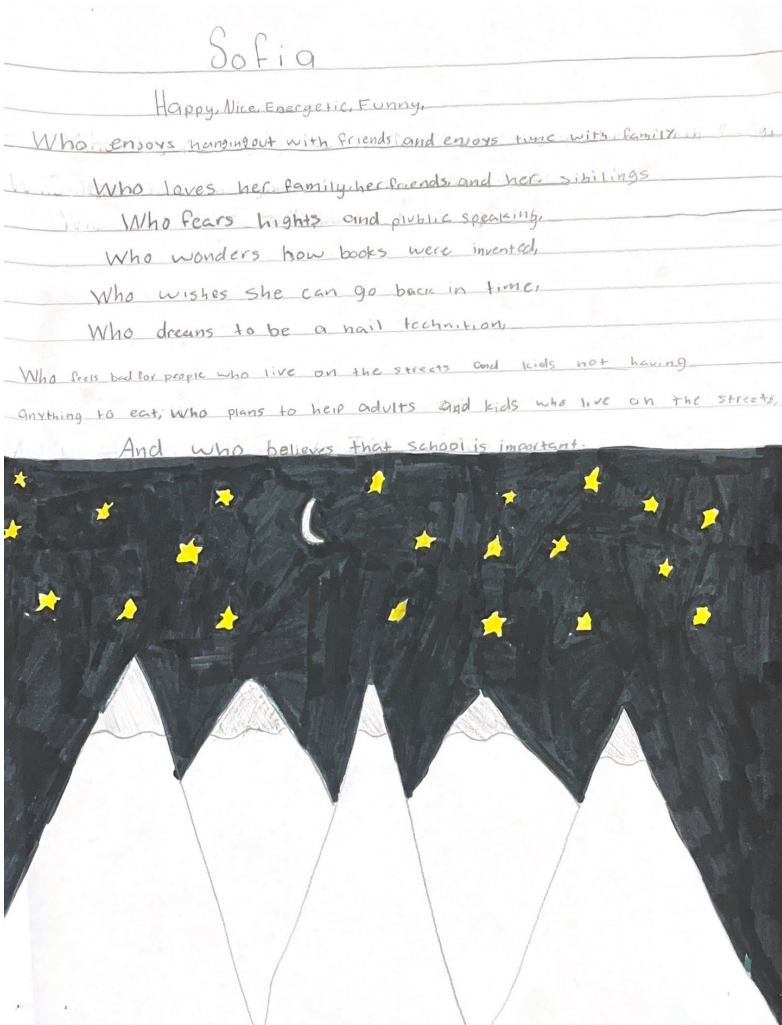 Sofia
Happy, Nice, Energetic, Funny,
Who enjoys hangingout with friends and enjoys time with family,
Who loves her family, her friends, and her sibilings
Who fears hights and plublic speaking,
Who wonders how books were invented,
Who wishes she can go back in time,
Who dreans to be a nail technition,
Who feels bad for people who live on the streets and kids not having
anything to eat, Who plans to help adults and kids who live on the streets,
And who believes that school is important.